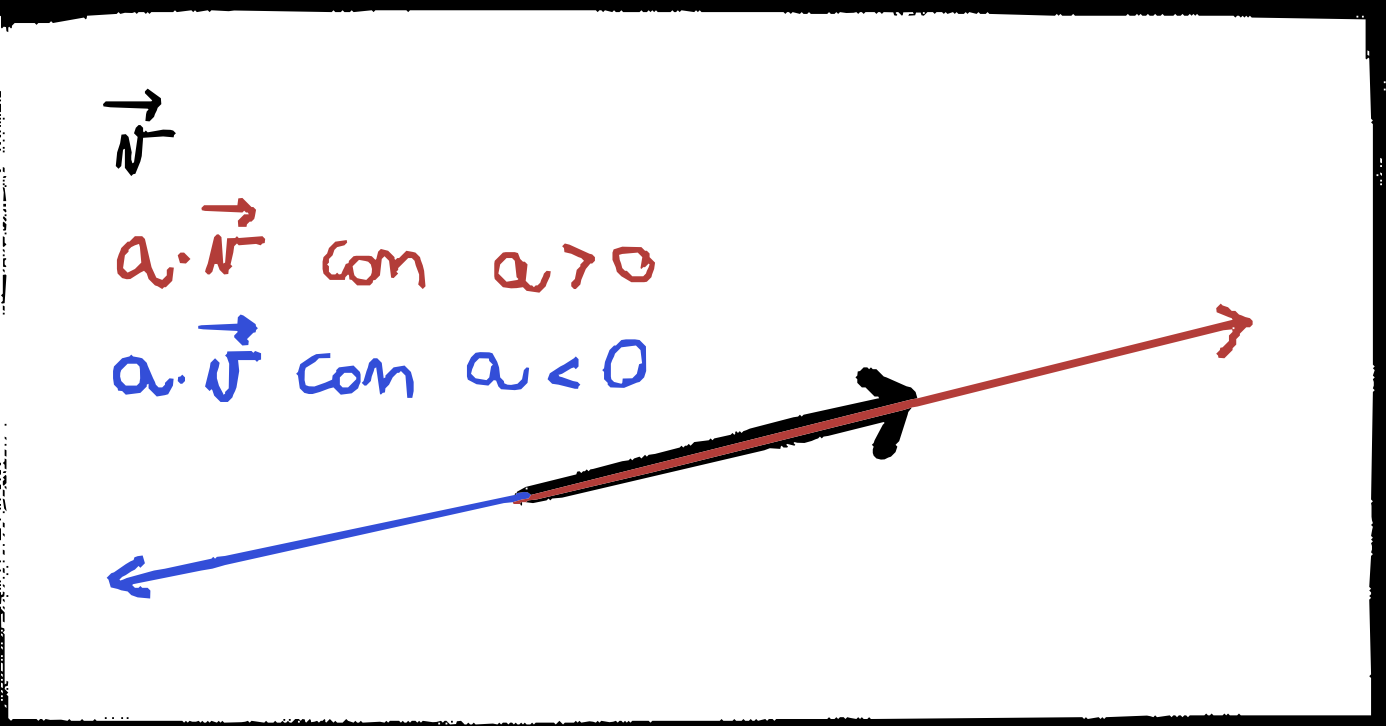 v⃗
a·v⃗ con a > 0
a·v⃗ con a < 0